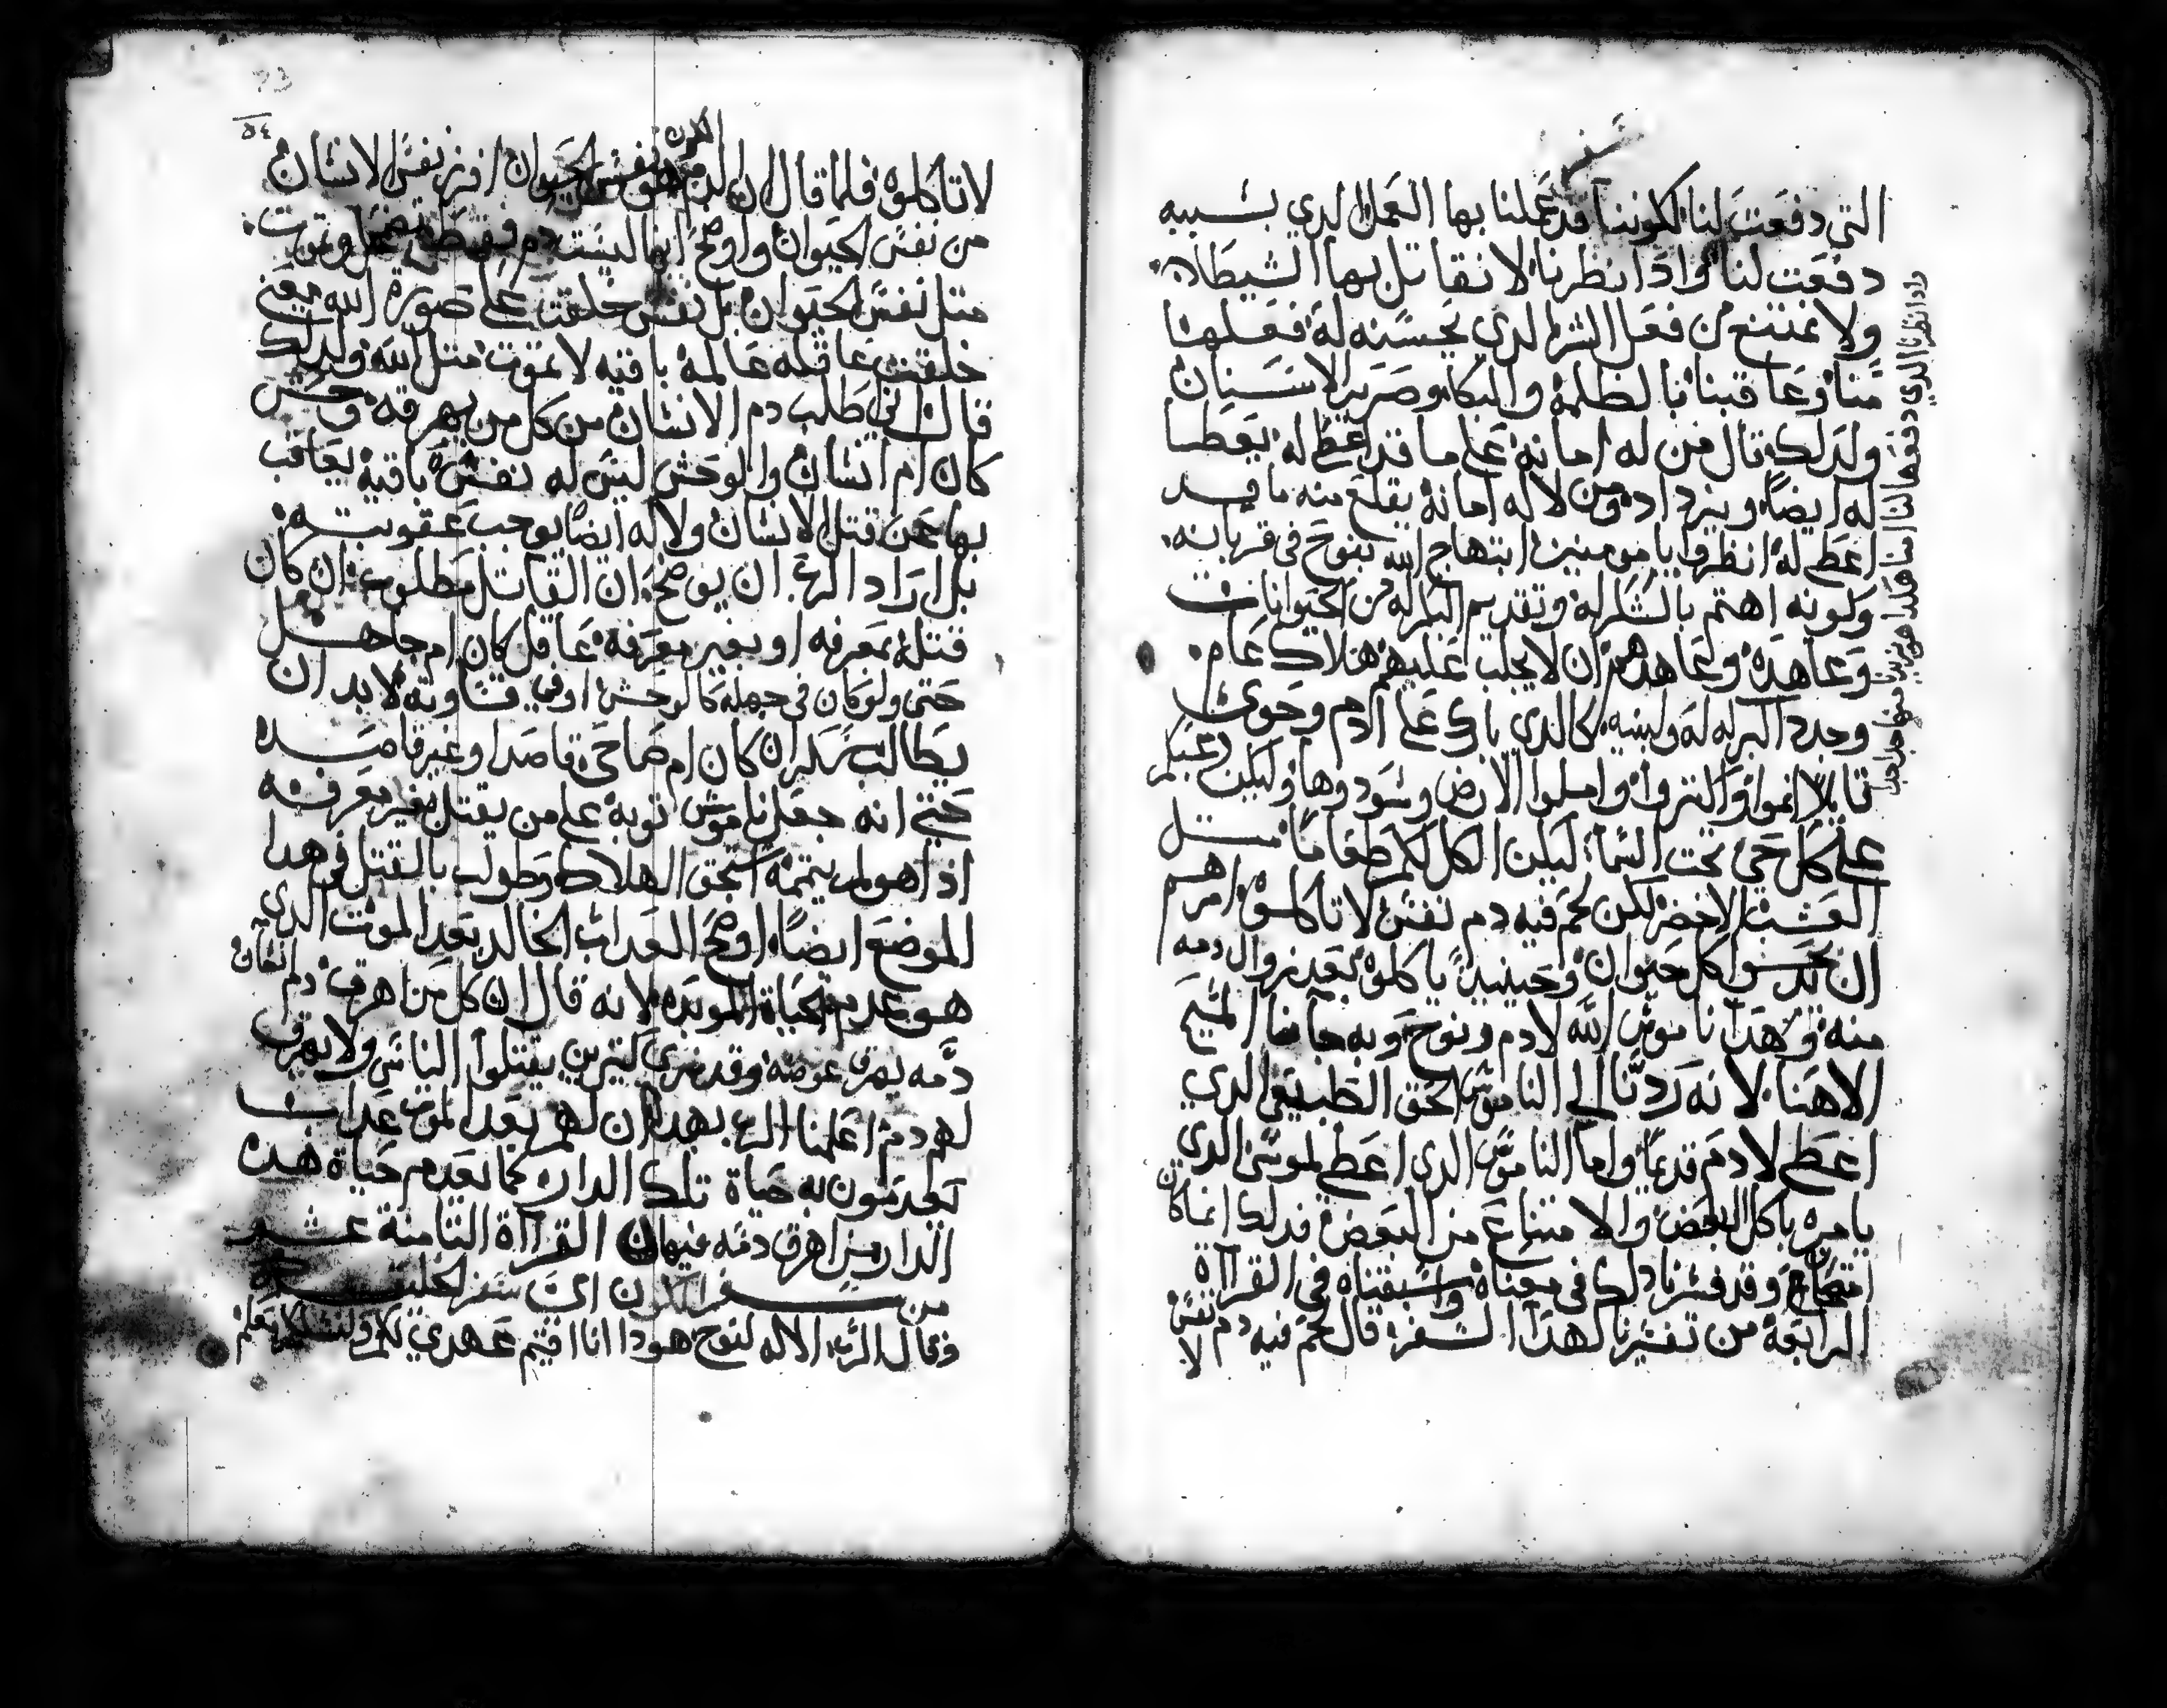 التي دفعت لنا لكوننا قد عملنا بها العمل الدي بسببه
دفعت لنا وادا نظرنا لا نقاتل بها الشيطان
ولا نمتنع من فعل الشر الدي يحسنه له فعلها
منا وعاقبنا بالظلمة والبكا وصرير الاسنان
ولدلك قال من له امانة على ما قد اعطى له يعطا
له ايضا ويزداد ومن لا له امانة يقلع منه ما قد
اعطى له انظروا يا مومنين ابتهاج الله بنوح في قربانه
ولونه اهتم بالشارله وتقديم البارله من الحيوانات
وعاهده وعاهدهم ان لا يجلب عليهم هلاك عام
وجدد البركه له ولبنيه كالدي بارك على ادم وحوى
قايلا انموا واكتروا واملوا الارض وسودوها وليكن رعبكم
على كل حي تحت السما ليكن الكل لكم طعاما متل
العشب الاخضر لكن لحم فيه دم نفس لا تاكلوه امرهم
ان كل حيوان وحينيد ياكلوه بعد زوال دمه
منه وهدا ناموس الله لادم ونوح وبه جانا المسيح
الاهنا لانه ردنا الى الناموس الحق الطبيعي الدي
اعطى لادم قديما واما الناموس الدي اعطى لموسى الدي
يامره باكل البعض والامتناع من البعض فدلك انما كان
وقد فسرنا دلك في معناه وسبقناه في القرااة
الرابعة من تفسيرنا لهدا السفر قال لحم فيه دم نفس
لا
وادا نظرنا الدي دفعها لنا اننا هكدا
٥٤
لا تاكلوه فلما قال ان الدم هو نفس الحيوان افرز نفس الانسان
من نفس الحيوان واوضح انها ليست دم فقط وتموت
متل نفس الحيوان بل نفس خلقت على صورة الله معنى
خلقت عاقله عالمة باقيه لا تموت متل الله ولدلك
قال اني طلب دم الانسان من كل من يهرقه وحش
كان ام انسان والوحش ليس له نفس باقية يعاقب
بها عن قتل الانسان ولا له ايضا يوجب عقوبته
بل اراد الرب ان يوضح ان القاتل مطلوب ان كان
قتله بمعرفه او بغير معرفة عاقل كان ام جاهل
حتى ولو كان في جهله كالوحش اوفي قساوته لا بد ان
يطالب سكران كان ام صاحي قاصدا وغير قاصده
حتى انه جعل ناموس توبة على من يقتل بغير معرفه
ادا هو لم يتممه استحق الهلاك وطولب بالقتل في هدا
الموضع ايضا اوضح العداب الخالد بعد الموت الدي
هو عدم الحياة الموبده لانه قال ان كل من اهرق دم انسان
دمه يهرق عوضه وقد نري كتيرين يقتلوا الناس ولا يهرق
لهم دم اعلمنا الرب بهدا ان لهم بعد الموت عداب
يعدمون به حياة تلك الدار كما نعدم حياة هده
الدار من اهرق دمه فيها القرااة التامنة عشر
من سفر التكوين اي سفر الخليقه
وقال الرب الاله لنوح هودا انا اقيم عهدي لكم ولنسلكم بعدكم